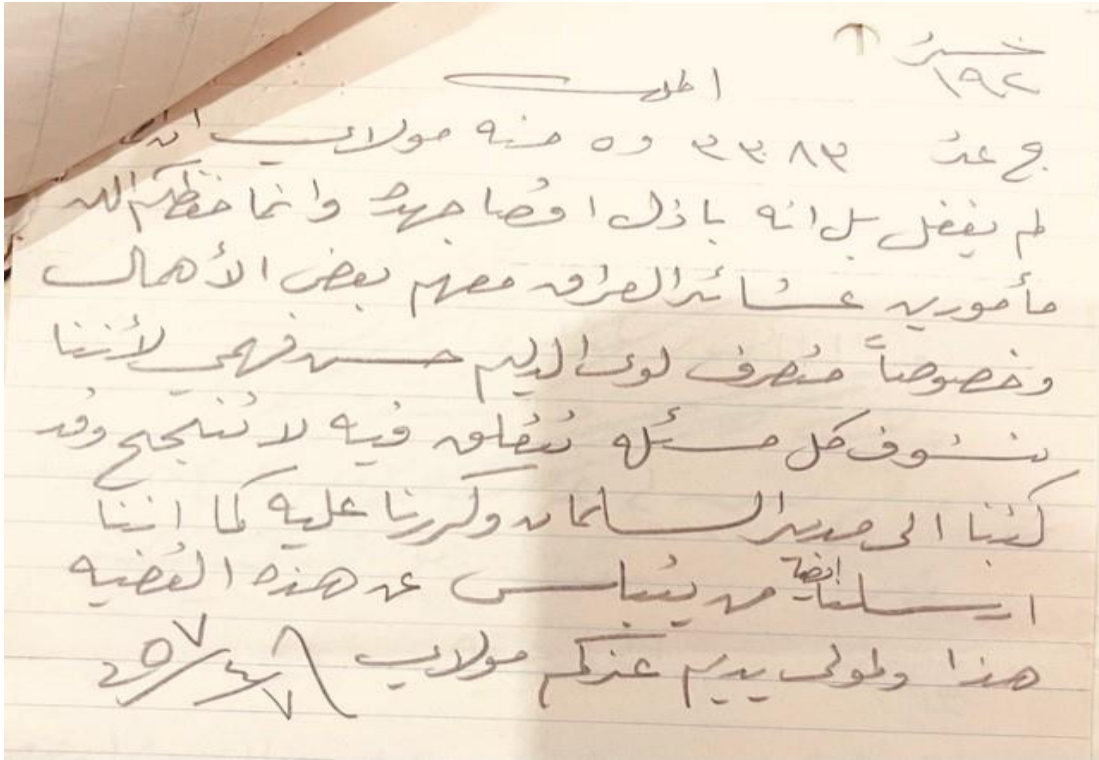 ١٩٢
ج عدد ٣٣٨٣ وه منه مولاي
لم يغفل بل انه باذل اقصا جهده وانما حفظكم الله
مأمورين عشائر العراق معهم بعض الأهمال
وخصوصاً متصرف لوى الدليم حسن فهمي لأننا
نشوف كل مسئله تتعلق فيه لا تنتجح وقد
كتبنا الى مدير السلمان وكررنا عليه كما اننا
ارسلنا ايضة من يتباسس عن هذه القضيه
هذا والمولى يديم عزكم مولاي